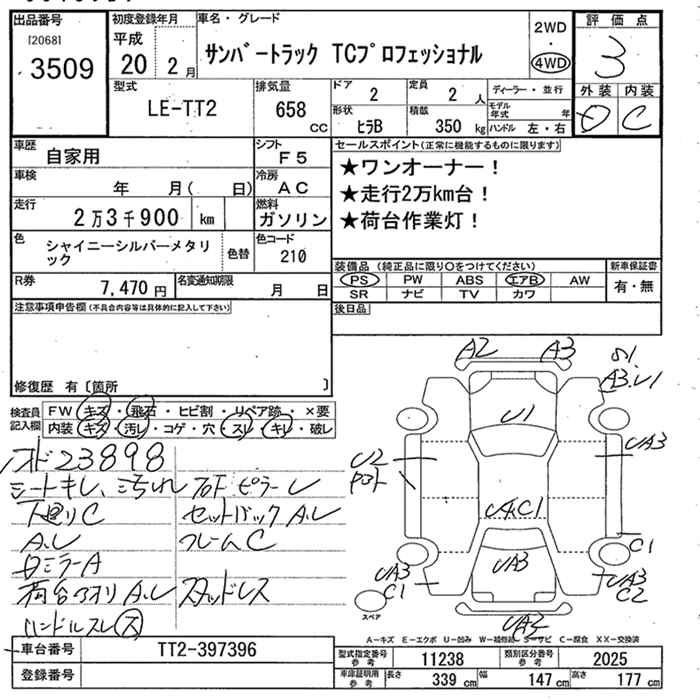 出品番号
[2068]
3509
初度登録年月
平成
20 2月
車名・グレード
サンバートラック TCプロフェッショナル
2WD
・
4WD
評価点
3
外装 内装
D C
型式
LE-TT2
排気量
658
cc
ドア
2
定員
2 人
形状
ヒラB
積載
350 kg
ディーラー・並行
モデル年式 年
ハンドル 左・右
車歴
自家用
シフト
F5
車検
年 月( 日)
冷房
AC
走行
2万3千900 km
燃料
ガソリン
色
シャイニーシルバーメタリック
色替
色コード
210
R券
7,470 円
名変通知期限
月 日
セールスポイント(正常に機能するものに限ります)
★ワンオーナー!
★走行2万km台!
★荷台作業灯!
装備品(純正品に限り○をつけてください)
PS PW ABS エアB AW
SR ナビ TV カワ
新車保証書
有・無
後日品
注意事項申告欄(不具合内容等は具体的に記入して下さい)
修復歴 有〔箇所 〕
検査員記入欄
FW キズ・飛石・ヒビ割・リペア跡・×要
内装 キズ・汚れ・コゲ・穴・スレ・キレ・破レ
23898
シートキレ、汚れ
下廻りC
A.レ
ミラーA
荷台アオリ A.レ
ハンドルスレ
ピラーレ
セットバック A.レ
フレームC
スタッドレス
A2 A3
S1
A3.U1
U1
UA3
U2
UA.C1
UA3
C1
UA3
C1
UA3
C2
UA3
スペア
A-キズ E-エクボ U-凹み W-補修跡 S-サビ C-腐食 XX-交換済
車台番号
TT2-397396
登録番号
型式指定番号
参考
11238
類別区分番号
参考
2025
車庫証明用
参考
長さ 339 cm 幅 147 cm 高さ 177 cm